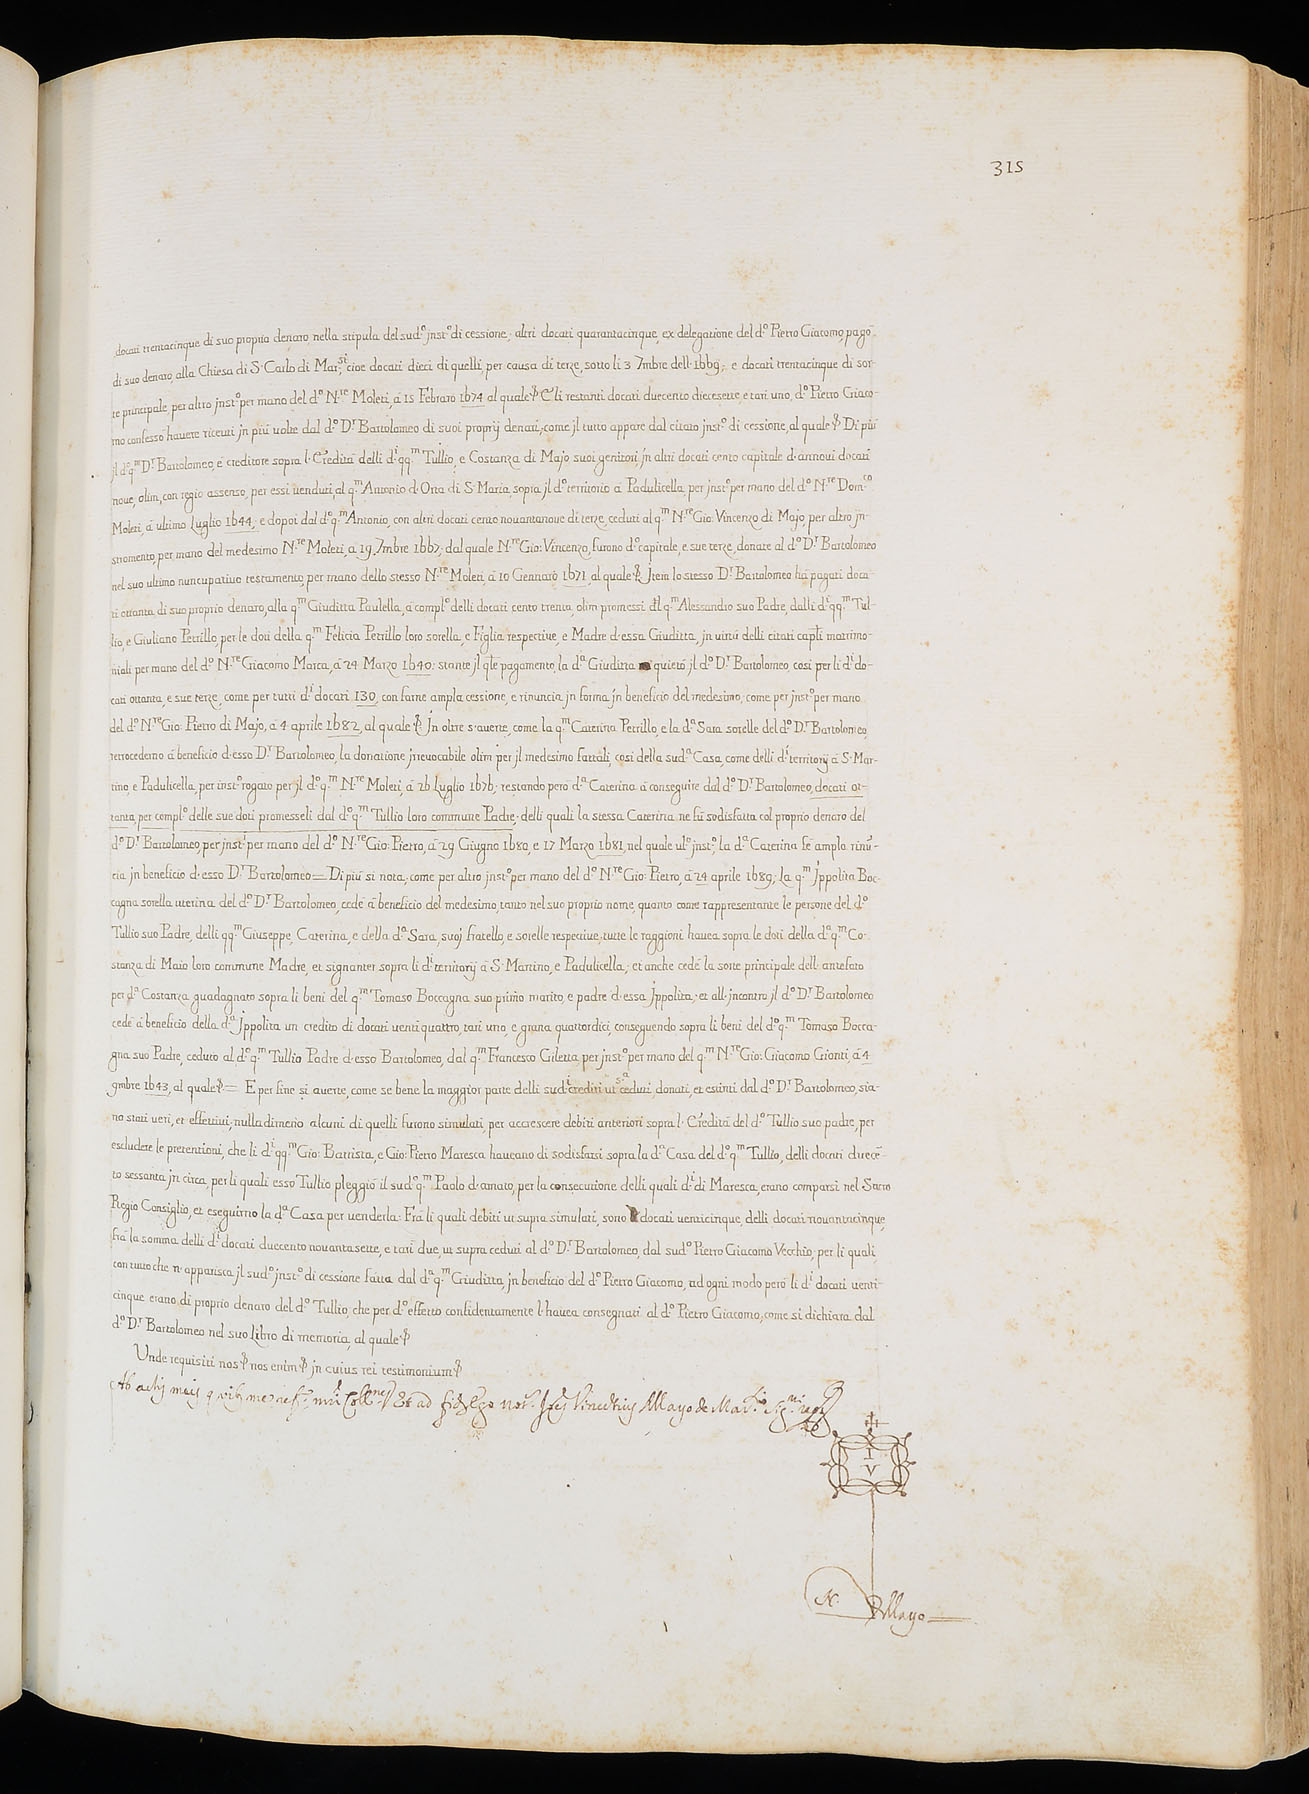 315
docati trentacinque di suo proprio denaro, nella stipula del sud.º jnst.º di cessione; altri docati quarantacinque, ex delegatione del d.º Pietro Giacomo, pagò
di suo denaro, alla Chiesa di S. Carlo di Mar.si; cioè docati dieci di quelli, per causa di terze, sotto li 3 7mbre dell. 1669; e docati trentacinque di sor-
te principale, per altro jnst.º per mano del d.º N.re Moleti, à 15 Febraro 1674 al quale & E li restanti docati duecento diecesette, e tari uno, d.º Pietro Giaco-
mo confessò havere riceuti jn più uolte dal d.º D.r Bartolomeo di suoi proprij denari, come jl tutto appare dal citato jnst.º di cessione, al quale & Di più
jl d.º q.m D.r Bartolomeo, è creditore sopra l. Eredità delli d.i qq.m Tullio, e Costanza di Majo suoi genitori, jn altri docati cento capitale d. annoui docati
noue, olim, con regio assenso, per essi uenduti al q.m Antonio d. Orta di S. Maria, sopra jl d.º territorio à Padulicella, per jnst.º per mano del d.º N.re Dom.co
Moleti, à ultimo Luglio 1644; e dopoi dal d.º q.m Antonio, con altri docati cento nouantanoue di terze, ceduti al q.m N.re Gio: Vincenzo di Majo, per altro jn-
stromento, per mano del medesimo N.re Moleti, à 19 7mbre 1667; dal quale N.re Gio: Vincenzo, furono d.º capitale, e sue terze, donate al d.º D.r Bartolomeo
nel suo ultimo nuncupatiuo testamento, per mano dello stesso N.re Moleti, à 10 Gennarò 1671, al quale & Jtem lo stesso D.r Bartolomeo hà pagati doca-
ti ottanta di suo proprio denaro, alla q.m Giuditta Paulella, à compl.º delli docati cento trenta, olim promessi al q.m Alessandro suo Padre, dalli d.i qq.m Tul-
lio, e Giuliano Petrillo, per le doti della q.m Felicia Petrillo loro sorella, e Figlia respectiue, e Madre d. essa Giuditta, jn uirtù delli citati capli matrimo-
niali per mano del d.º N.re Giacomo Marca, à 24 Marzo 1640: stante jl qle pagamento, la d.a Giuditta quietò jl d.º D.r Bartolomeo, così per li d.i do-
cati ottanta, e sue terze, come per tutti d.i docati 130, con farne ampla cessione, e rinuncia jn forma, jn beneficio del medesimo, come per jnst.º per mano
del d.º N.re Gio: Pietro di Majo, à 4 aprile 1682, al quale & Jn oltre s. auerte, come la q.m Caterina Petrillo, e la d.a Sara sorelle del d.º D.r Bartolomeo,
retrocederno à beneficio d. esso D.r Bartolomeo, la donatione jrreuocabile olim per jl medesimo fattali, così della sud.a Casa, come delli d.i territorij à S. Mar-
tino, e Padulicella, per inst.º rogato per jl d.º q.m N.re Moleti, à 26 Luglio 1676; restando però d.a Caterina à conseguire dal d.º D.r Bartolomeo, docati ot-
tanta, per compl.º delle sue doti promesseli dal d.º q.m Tullio loro commune Padre; delli quali la stessa Caterina ne fù sodisfatta col proprio denaro del
d.º D.r Bartolomeo, per jnst.i per mano del d.º N.re Gio: Pietro, à 29 Giugno 1680, e 17 Marzo 1681, nel quale ul.º jnst.º, la d.a Caterina fè ampla rinũ-
cia jn beneficio d. esso D.r Bartolomeo = Di più si nota, come per altro jnst.º per mano del d.º N.re Gio: Pietro, à 24 aprile 1689, La q.m Jppolita Boc-
cagna sorella uterina del d.º D.r Bartolomeo, cedè à beneficio del medesimo, tanto nel suo proprio nome, quanto come rappresentante le persone del d.º
Tullio suo Padre, delli qq.m Giuseppe, Caterina, e della d.a Sara, suoj fratello, e sorelle respectiue, tutte le raggioni hauea sopra le doti della d.a q.m Co-
stanza di Maio loro commune Madre, et signanter sopra li d.i territorij à S. Martino, e Padulicella; et anche cedè la sorte principale dell. antefato
per d.a Costanza guadagnato sopra li beni del q.m Tomaso Boccagna suo primo marito, e padre d. essa Jppolita; et all. jncontro jl d.º D.r Bartolomeo
cedè à beneficio della d.a Jppolita un credito di docati uenti quattro, tari uno, e grana quattordici, conseguendo sopra li beni del d.º q.m Tomaso Bocca-
gna suo Padre, ceduto al d.º q.m Tullio Padre d. esso Bartolomeo, dal q.m Francesco Giletta, per jnst.º per mano del q.m N.re Gio: Giacomo Gionti, à 4
9mbre 1643, al quale & = E per fine si auerte, come se bene la maggior parte delli sud.i crediti ut s.a ceduti, donati, et estinti dal d.º D.r Bartolomeo, sia-
no stati ueri, et effettiui; nulladimeno alcuni di quelli furono simulati, per accrescere debiti anteriori sopra l. Eredità del d.º Tullio suo padre, per
escludere le pretentioni, che li d.i qq.m Gio: Battista, e Gio: Pietro Maresca haueano di sodisfarsi sopra la d.a Casa del d.º q.m Tullio, delli docati duecẽ-
to sessanta jn circa, per li quali esso Tullio pleggiò il sud.º q.m Paolo d. amato, per la consecutione delli quali d.i di Maresca, erano comparsi nel Sacro
Regio Consiglio, et eseguirno la d.a Casa per uenderla: Frà li quali debiti ut supra simulati, sono docati uenticinque, delli docati nouantacinque,
frà la somma delli d.i docati duecento nouantasette, e tari due, ut supra ceduti al d.º D.r Bartolomeo, dal sud.º Pietro Giacomo Vecchio, per li quali,
con tutto che n. apparisca jl sud.º jnst.º di cessione fatta dal d.a q.m Giuditta, jn beneficio del d.º Pietro Giacomo, ad ogni modo però li d.i docati uenti-
cinque erano di proprio denaro del d.º Tullio, che per d.º effetto confidentemente l. hauea consegnati al d.º Pietro Giacomo; come si dichiara dal
d.º D.r Bartolomeo nel suo Libro di memoria, al quale &
Unde requisiti nos & nos enim & jn cuius rei testimonium &
Ab actis meis Et ad fid Ego not. Vincentius Mayo de
I
V
N. Mayo